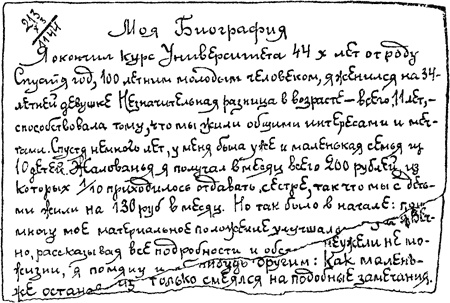 213
×3
1144
Моя Биография
Я окончил курс Университета 44 х лет от роду
Спустя год, 100 летним молодым человеком, я женился на 34-
летней девушке Незначительная разница в возрасте – всего 11 лет, –
способствовала тому, что мы жили общими интересами и меч-
тами. Спустя немного лет, у меня была уже и маленькая семья из
10 детей. Жалованья я получал в месяц всего 200 рублей, из
которых 1/10 приходилось отдавать сестре, так что мы с деть-
ми жили на 130 руб в месяц. Но так было в начале:
многу мое материальное положение
но, рассказывая все подробности и неужели не мо-
жизни, я помяну и нибудь другим: Как малень-
же только смеялся на подобные замечания.